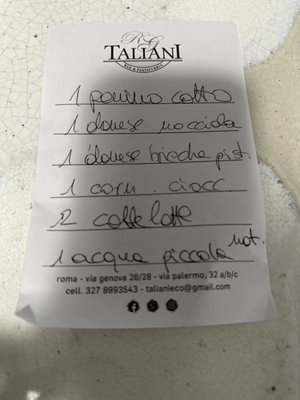 RG
TALIANI
BAR & PASTICCERIA
1 panino cotto
1 danese nocciola
1 danese brioche pist.
1 corn. ciocc.
2 caffe latte
1 acqua piccola nat.
roma - via genova 26/28 - via palermo, 32 a/b/c
cell. 327 8993543 - talianieco@gmail.com